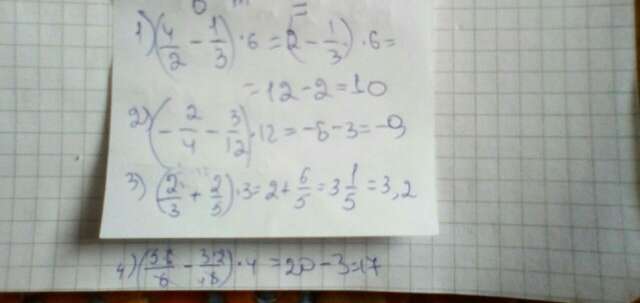 1) (4/2 - 1/3) · 6 = (2 - 1/3) · 6 =
= 12 - 2 = 10
2) (- 2/4 - 3/12) · 12 = -6 - 3 = -9
3) (2/3 + 2/5) · 3 = 2 + 6/5 = 3 1/5 = 3,2
4) · 4 = 20 - 3 = 17